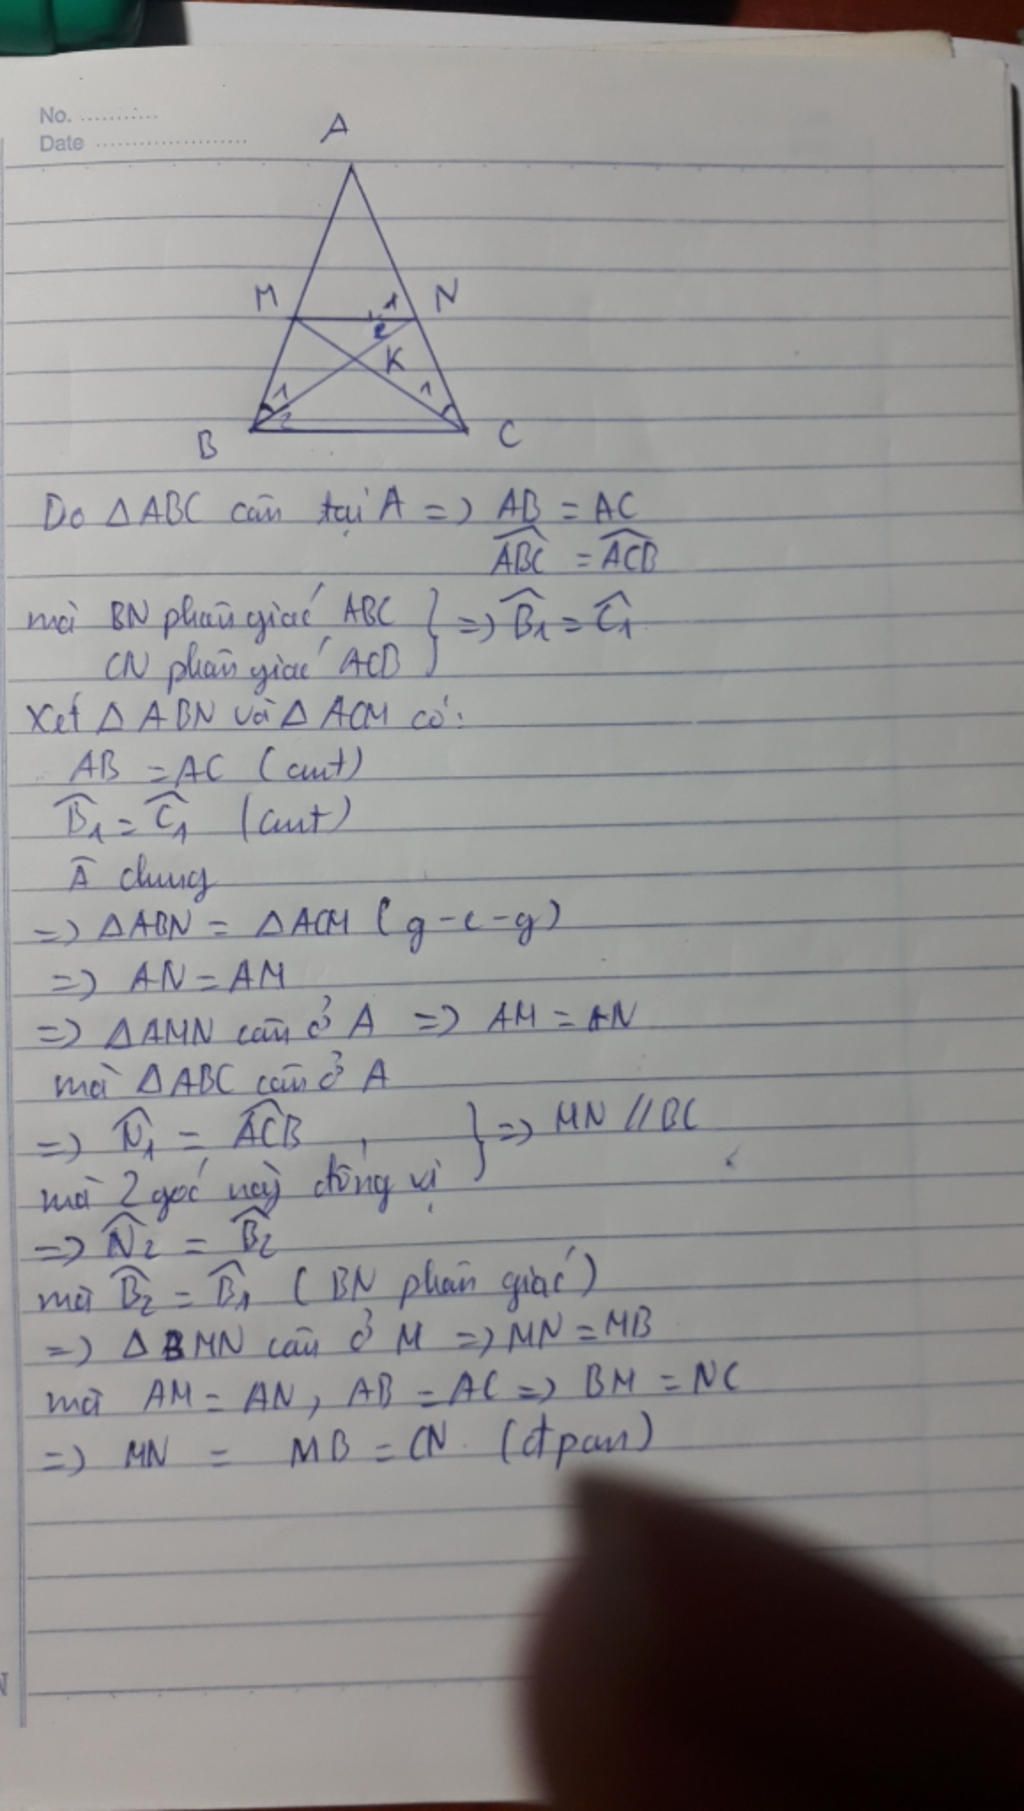 No. ...........
Date ......................
A
M
1
N
2
K
1
1
2
B
C
Do △ABC cân tại A => AB = AC
ABC = ACB
mà BN phân giác ABC } => B1 = C1
CN phân giác ACB
Xét △ABN và △ACM có:
AB = AC (cmt)
B1 = C1 (cmt)
A chung
=> △ABN = △ACM (g-c-g)
=> AN = AM
=> △AMN cân ở A => AM = AN
mà △ABC cân ở A
=> N1 = ACB } => MN // BC
mà 2 góc này đồng vị
=> N2 = B2
mà B2 = B1 (BN phân giác)
=> △BMN cân ở M => MN = MB
mà AM = AN, AB = AC => BM = NC
=> MN = MB = CN (đpcm)